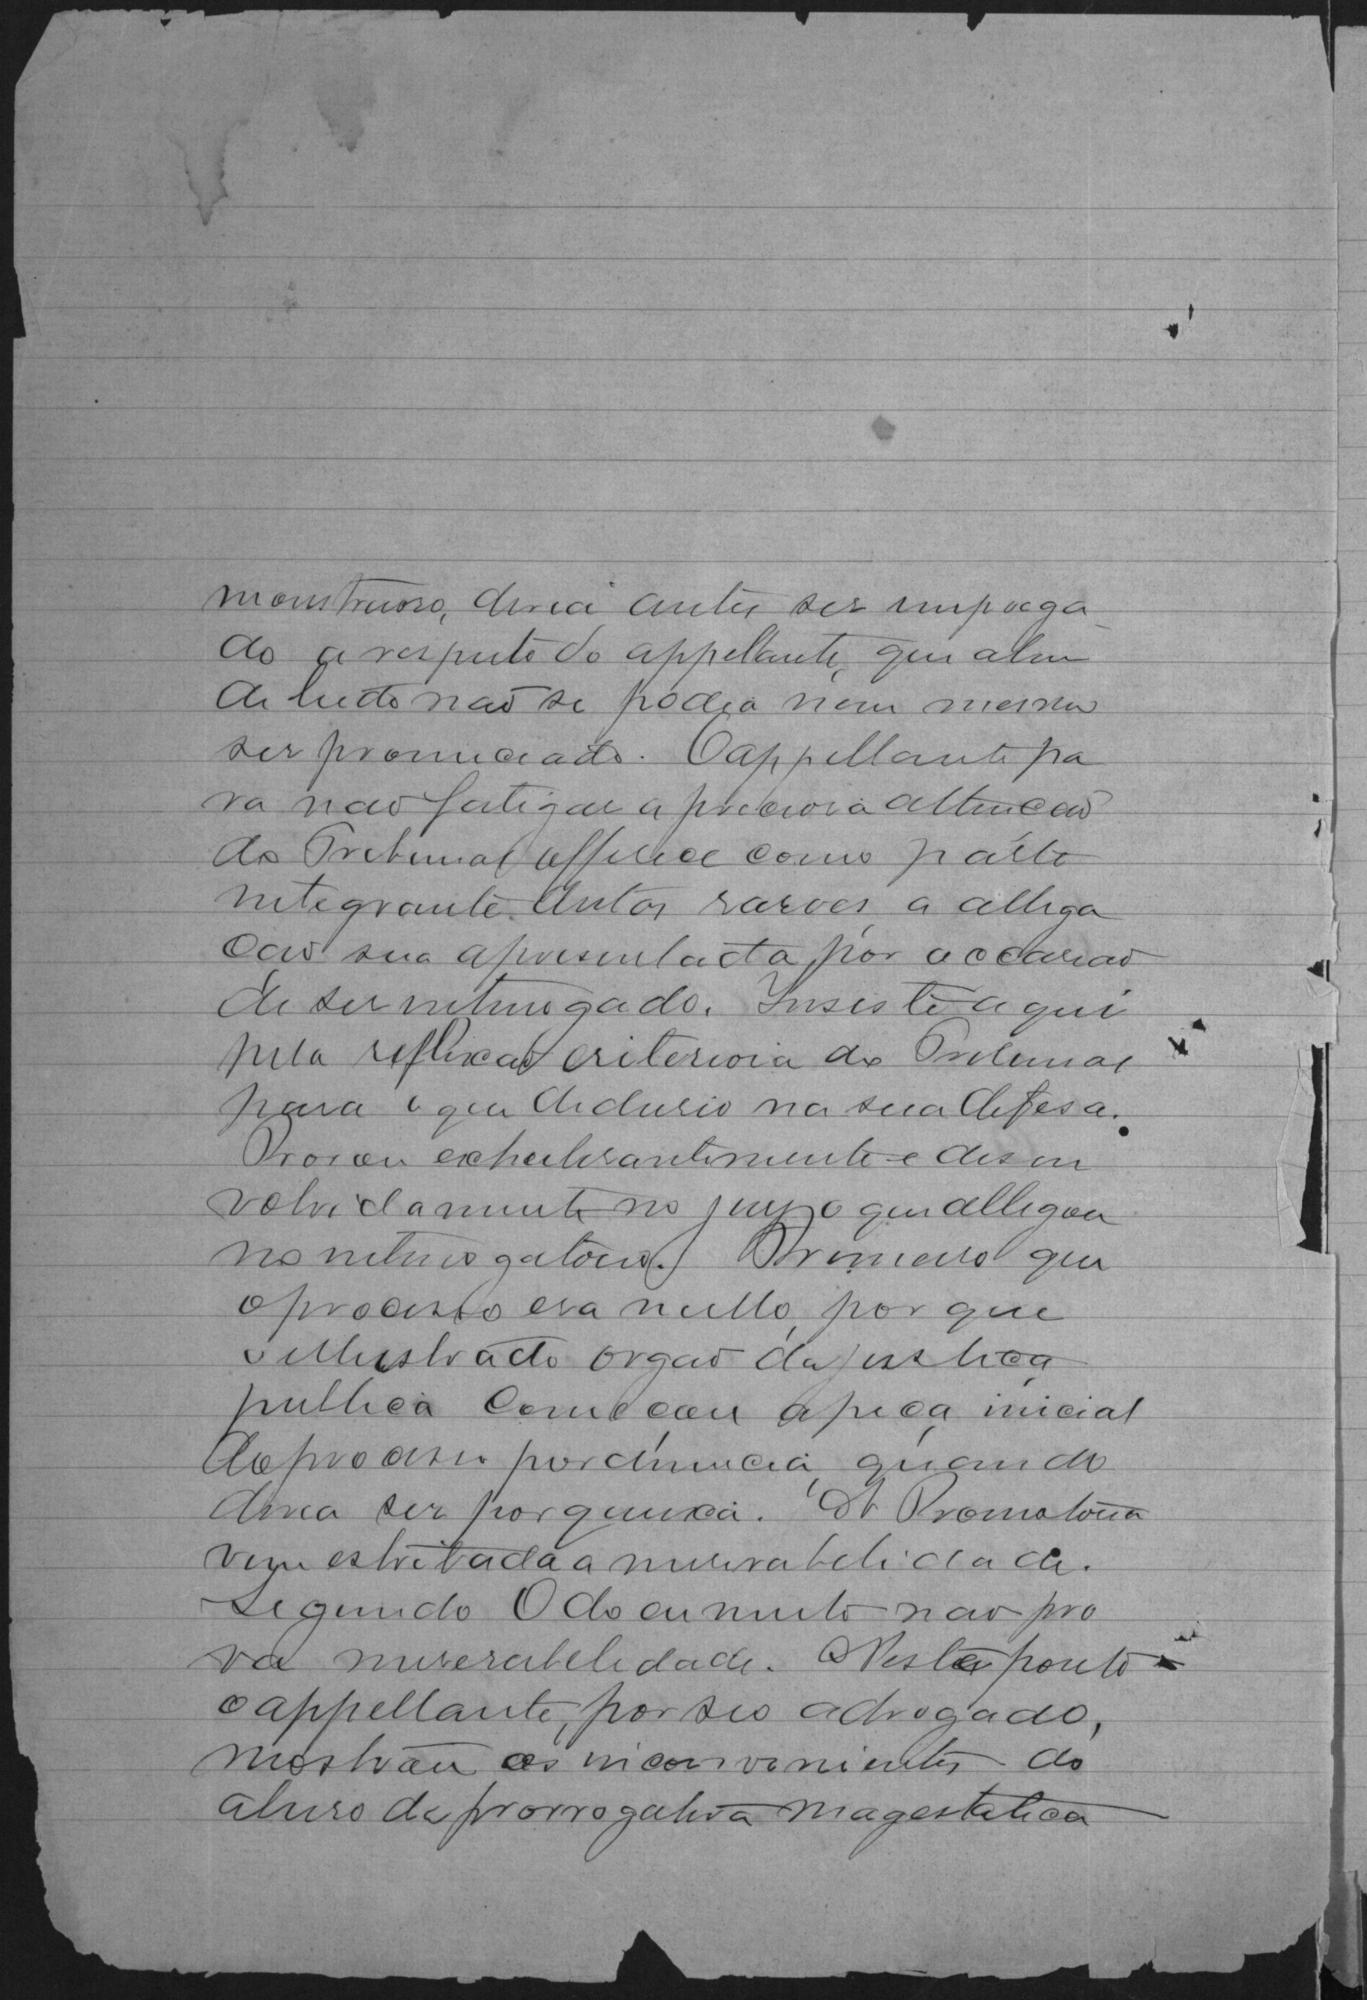 monstruoso, devia antes ser impoga
do a respeito do appellante, que alem
de tudo não se podia nem mesmo
ser pronunciado. O appellante pa
ra não fatigar a preciosa attenção
do Tribunal offerece como parte
integrante destas rasoes a allega
ção sua apresentada por occasião
de ser interrogado. Insiste aqui
pela reflexão criteriosa do Tribunal
para o que dedusio na sua defesa.
Provou exhuberantemente e desen
volvidamente no juizo que allegou
no interrogatorio. Primeiro que
o processo era nullo, por que
o illustrado orgão da justiça
publica começou a peça inicial
do processo por denuncia, quando
devia ser por queixa. A Promotoria
vem estribada a miserabelidade.
Segundo O documento não pro
va miserabelidade. Neste ponto
o appellante, por seo advogado,
mostrou os inconvenientes do
abuso da prorrogativa magestatica